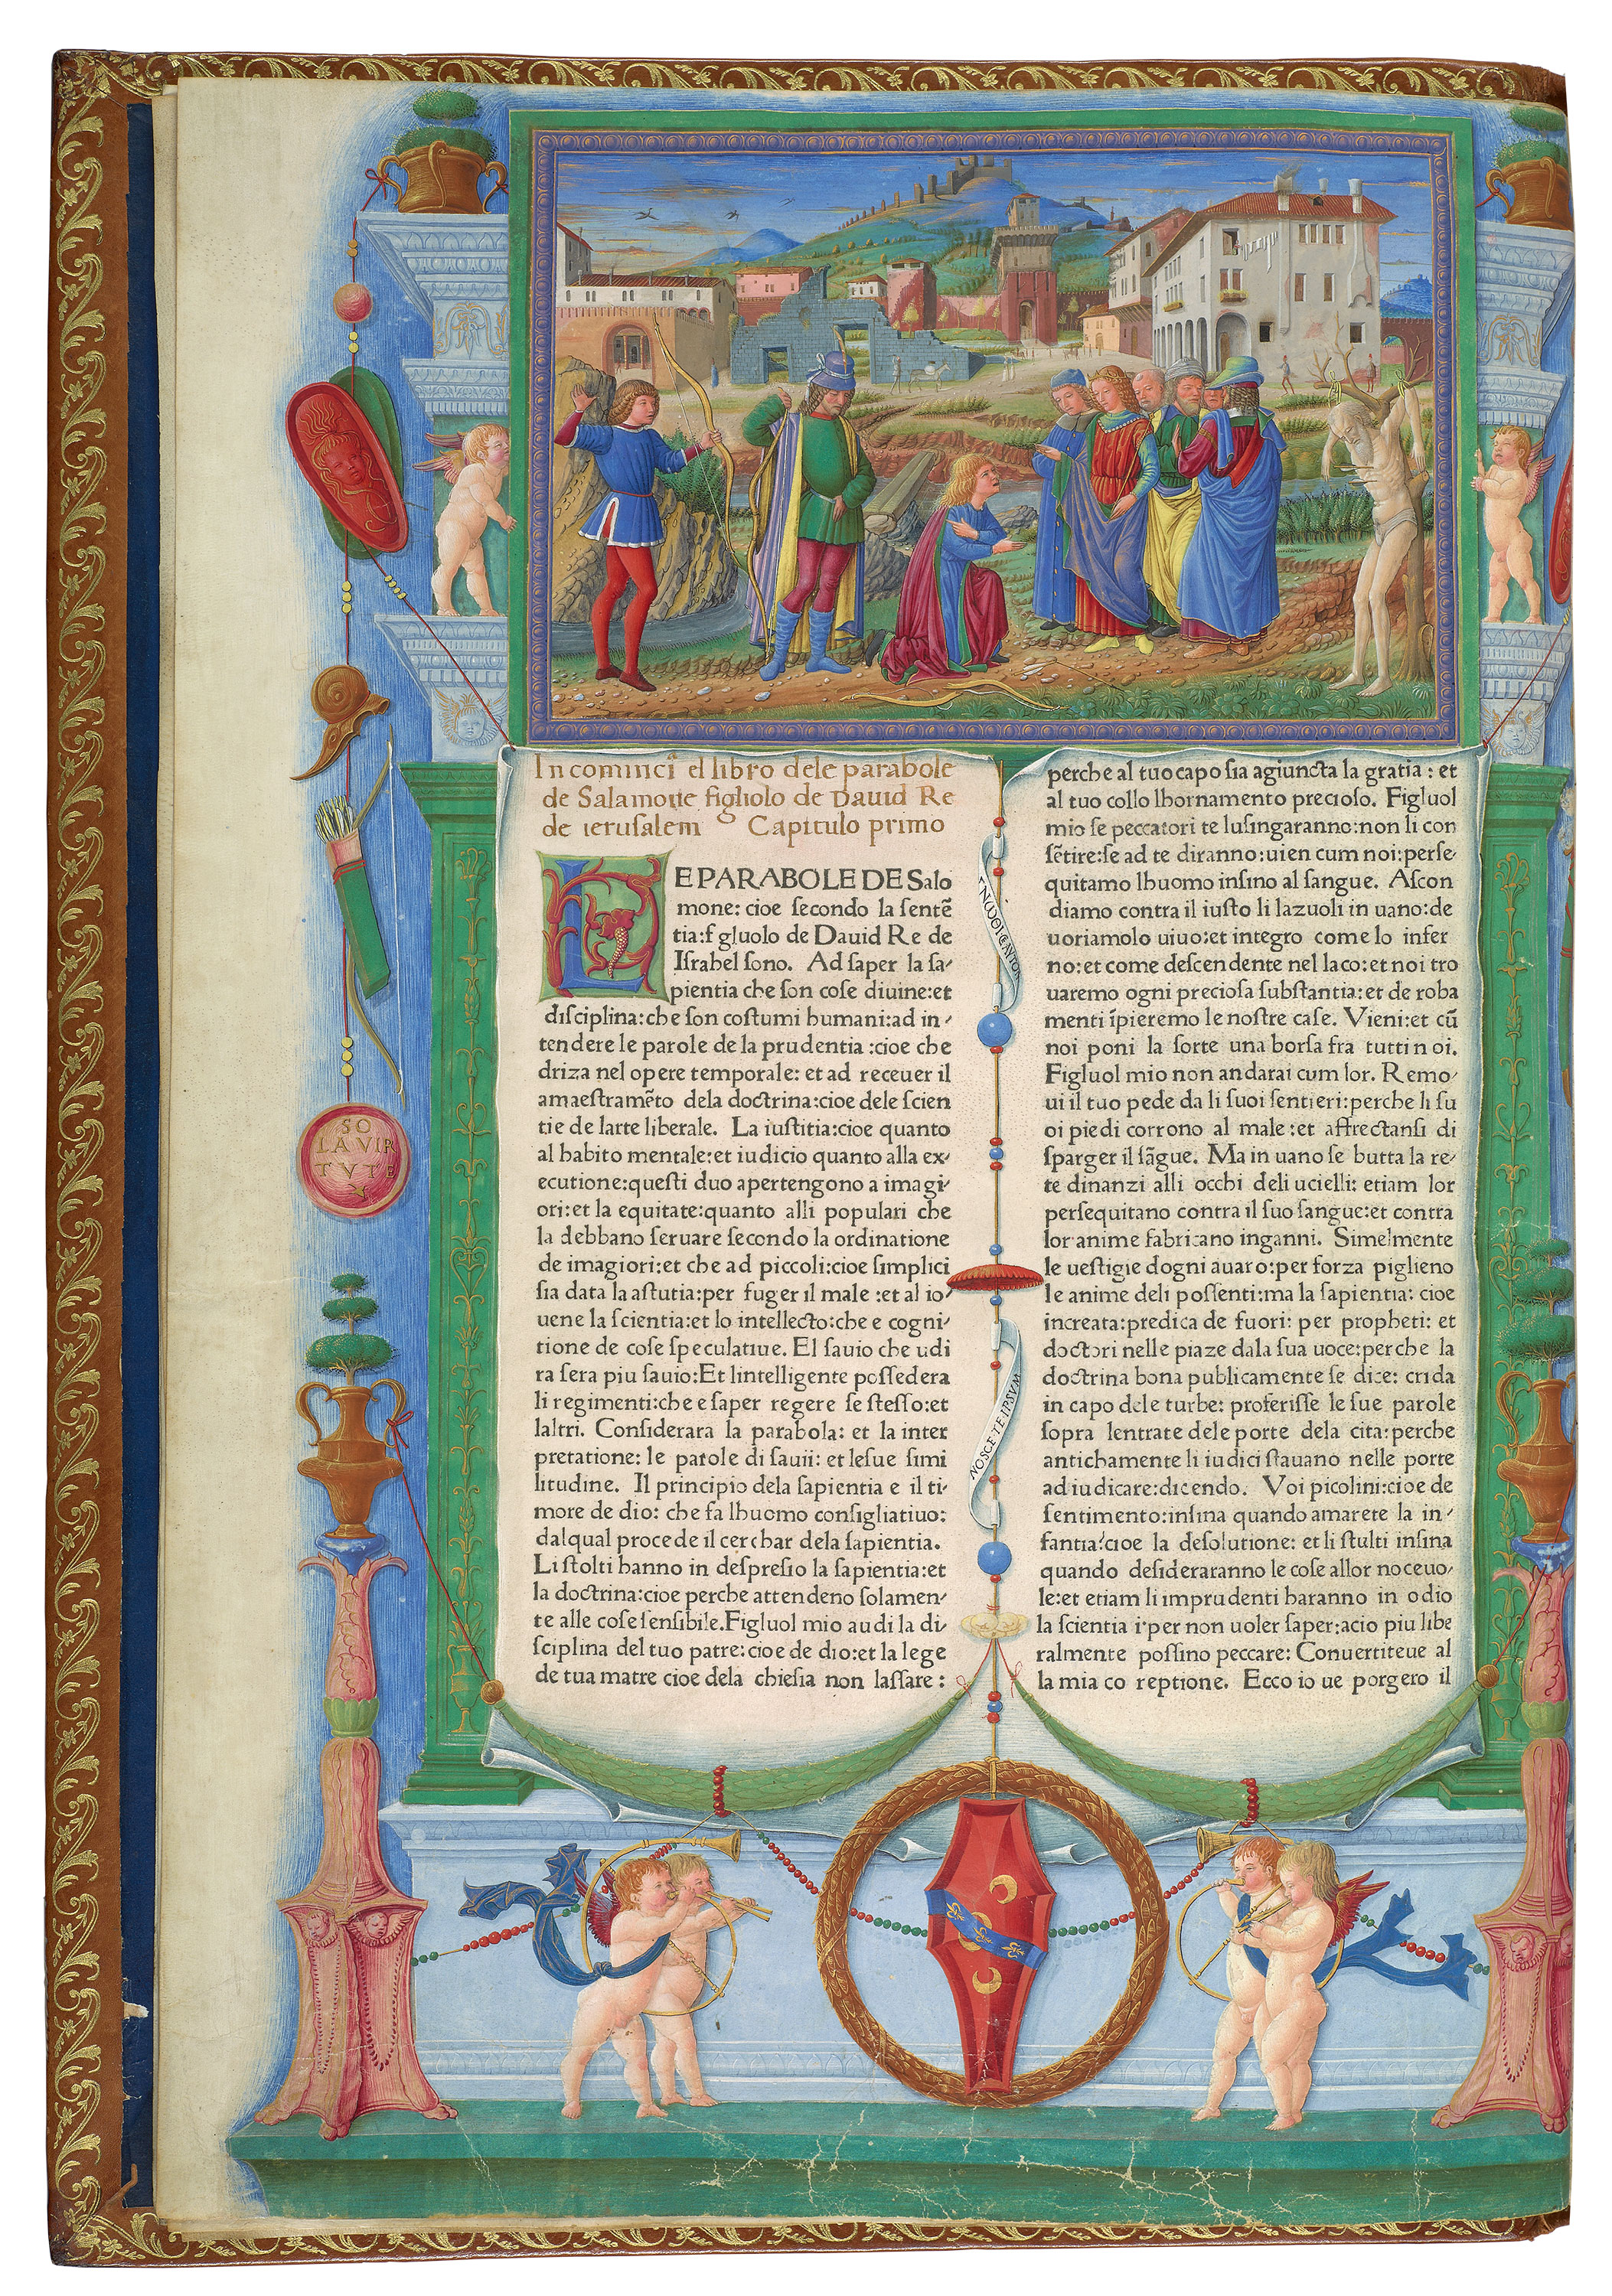 In cominci el libro dele parabole
de Salamone figliolo de David Re
de ierusalem Capitulo primo
LE PARABOLE DE Salo
mone: cioe secondo la sentẽ
tia:f gluolo de Dauid Re de
Israhel sono. Ad saper la sa-
pientia che son cose diuine:et
disciplina:che son costumi humani:ad in-
tendere le parole de la prudentia :cioe che
driza nel opere temporale: et ad receuer il
amaestramẽto dela doctrina:cioe dele scien
tie de larte liberale. La iustitia:cioe quanto
al habito mentale:et iudicio quanto alla ex-
ecutione:questi duo apertengono a imagi-
ori:et la equitate:quanto alli populari che
la debbano seruare secondo la ordinatione
de imagiori:et che ad piccoli:cioe simplici
sia data la astutia:per fuger il male :et al io-
uene la scientia:et lo intellecto:che e cogni-
tione de cose speculatiue. El sauio che udi
ra sera piu sauio:Et lintelligente possedera
li regimenti:che e saper regere se stesso:et
laltri. Considerara la parabola: et la inter
pretatione: le parole di sauii: et lesue simi
litudine. Il principio dela sapientia e il ti-
more de dio: che fa lhuomo consigliatiuo:
dalqual procede il cerchar dela sapientia.
Li stolti hanno in despresio la sapientia:et
la doctrina:cioe perche attendeno solamen-
te alle cose sensibile.Figluol mio audi la di-
sciplina del tuo patre:cioe de dio:et la lege
de tua matre cioe dela chiesia non lassare :
perche al tuo capo sia agiuncta la gratia : et
al tuo collo lhornamento precioso. Figluol
mio se peccatori te lusingaranno:non li con
sẽtire:se ad te diranno:uien cum noi:perse-
quitamo lhuomo insino al sangue. Ascon
diamo contra il iusto li lazuoli in uano:de
uoriamolo uiuo:et integro come lo infer
no:et come descendente nel laco:et noi tro
uaremo ogni preciosa substantia:et de roba
menti ĩpieremo le nostre case. Vieni:et cũ
noi poni la sorte una borsa fra tutti noi.
Figluol mio non andarai cum lor. Remo-
ui il tuo pede da li suoi sentieri:perche li su
oi piedi corrono al male :et affrectansi di
sparger il sãgue. Ma in uano se butta la re-
te dinanzi alli occhi deli ucielli: etiam lor
persequitano contra il suo sangue:et contra
lor anime fabricano inganni. Simelmente
le uestigie dogni auaro:per forza piglieno
le anime deli possenti:ma la sapientia: cioe
increata:predica de fuori: per propheti: et
doctori nelle piaze dala sua uoce:perche la
doctrina bona publicamente se dice: crida
in capo dele turbe: proferisse le sue parole
sopra lentrate dele porte dela cita:perche
antichamente li iudici stauano nelle porte
ad iudicare:dicendo. Voi picolini:cioe de
sentimento:insina quando amarete la in-
fantia:cioe la desolutione: et li stulti insina
quando desideraranno le cose allor noceuo-
le:et etiam li imprudenti haranno in odio
la scientia :per non uoler saper:acio piu libe
ralmente possino peccare: Conuertiteue al
la mia co reptione. Ecco io ue porgero il
SO
LA VIR
TVTE
NOSCE TE IPSVM